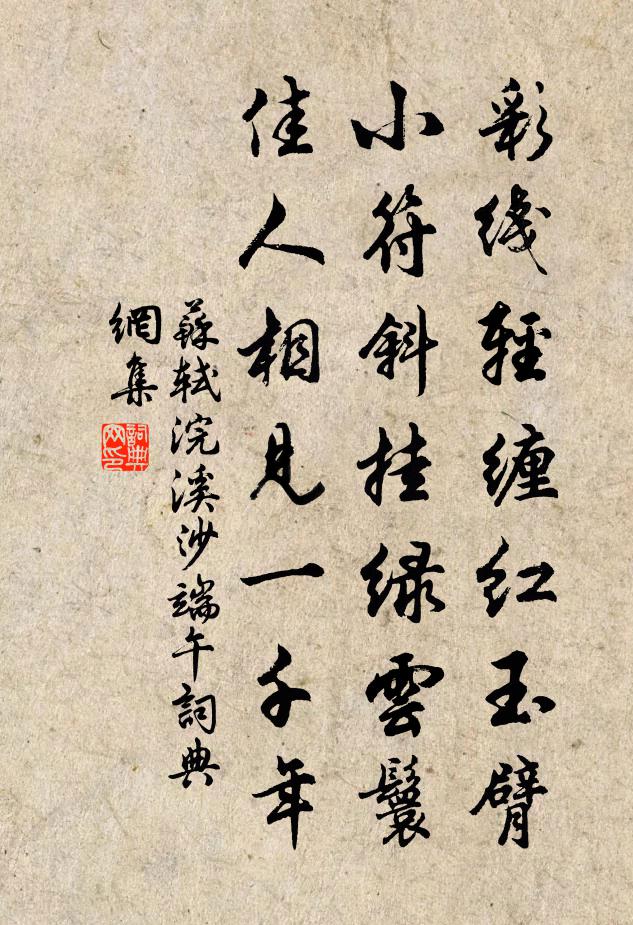 彩线轻缠红玉臂
小符斜挂绿雲鬟
佳人相見一千年
蘇軾浣溪沙端午詞典
網集
詞典
网印